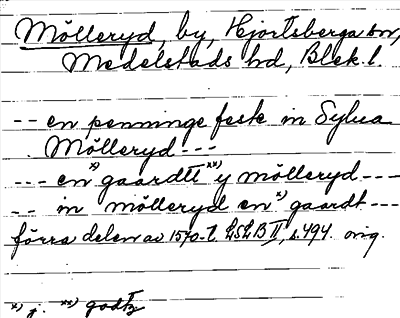 Mölleryd, by, Hjortsberga sn,
Medelstads hd, Blek. l.
-- en penninge feste in Sylua
Mölleryd ---
--- en x) gaardtt xx) y mölleryd ---
-- in mölleryd en x) gaardt ---
förra delen av 1570-t. LSLB II, s. 494. orig.
x) j. xx) godtz